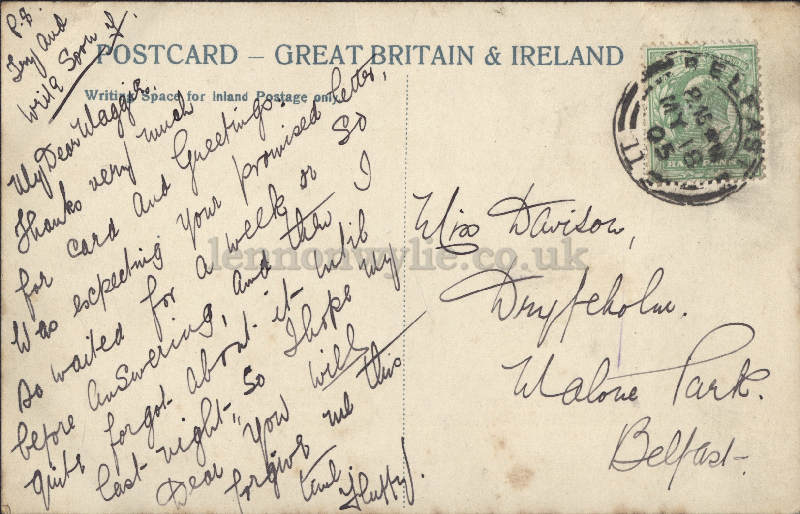 P.S.
Try and
write Soon F.
POSTCARD – GREAT BRITAIN & IRELAND
Writing Space for Inland Postage only.
My Dear Waggie.
Thanks very much
for card and Greetings.
Was expecting your promised letter,
so waited for a week or so
before answering, and then I
quite forgot about it until
last night so I hope my
Dear "You will
forgive me this
time Fluffy.
BELFAST
2.15 PM
MY 18
05
11
HALFPENNY
Miss Davison,
Dryfeholm.
Malone Park.
Belfast.
lennonwylie.co.uk